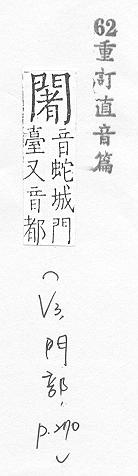 62重訂直音篇
闍
音蛇城門
臺又音都
(V3,門部,p.270)